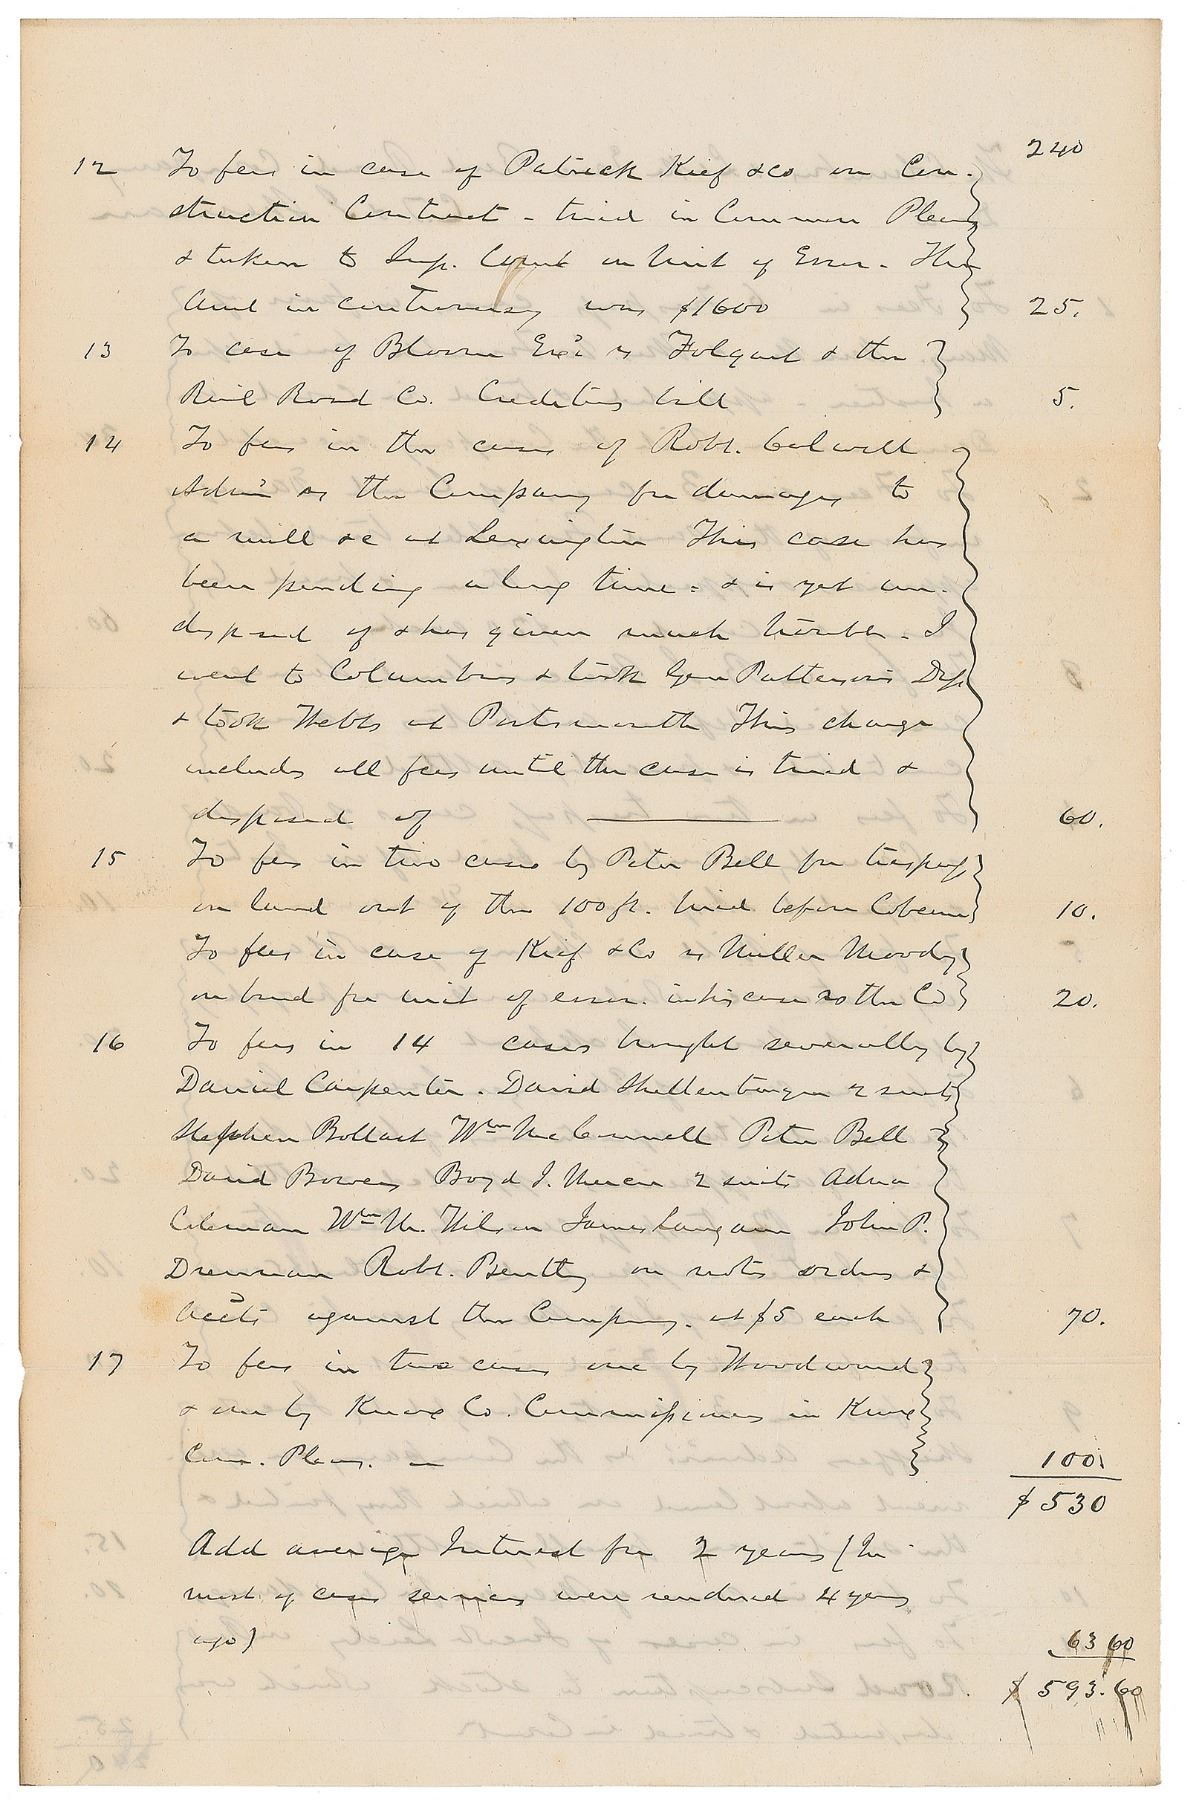 240
12 To fees in case of Patrick Kief &co on Con-
struction Contract - tried in Common Pleas
& taken to Sup. Court on Writ of Error - The
Amt in controversy was $1600 25.
13 To case of Bloom Exr vs Folgart & the
Rail Road Co. Creditors bill 5.
14 To fees in the case of Robt. Colwell
Admr vs the Company for damages to
a mill &c at Lexington This case has
been pending a long time = & is yet un-
disposed of & has given much trouble - I
went to Columbus & took Gen Pattersons Dep
& took Webbs at Portsmouth This charge
includes all fees until the case is tried &
disposed of 60.
15 To fees in two cases by Peter Bell for trespass
on land out of the 100 ft. tried before Coleman 10.
To fees in case of Kief &Co vs Miller Moody
on bond for writ of error in his case vs the Co 20.
16 To fees in 14 cases brought severally by
Daniel Carpenter. David Shellenbarger 2 suits
Stephen Bottart Wm McConnell Peter Bell
David Bowers Boyd J. Mercer 2 suits
Coleman Wm M. Wilson James Langam John P.
Drennan Robt. Bentley on notes orders &
Accts against the Company. at $5 each 70.
17 To fees in two cases one by Woodward
& one by Knox Co. Commissioners in Knox
Com. Pleas. — 100
$530
Add average Interest for 2 years (In
most of cases services were rendered 4 years
ago) 63 60
$593.60